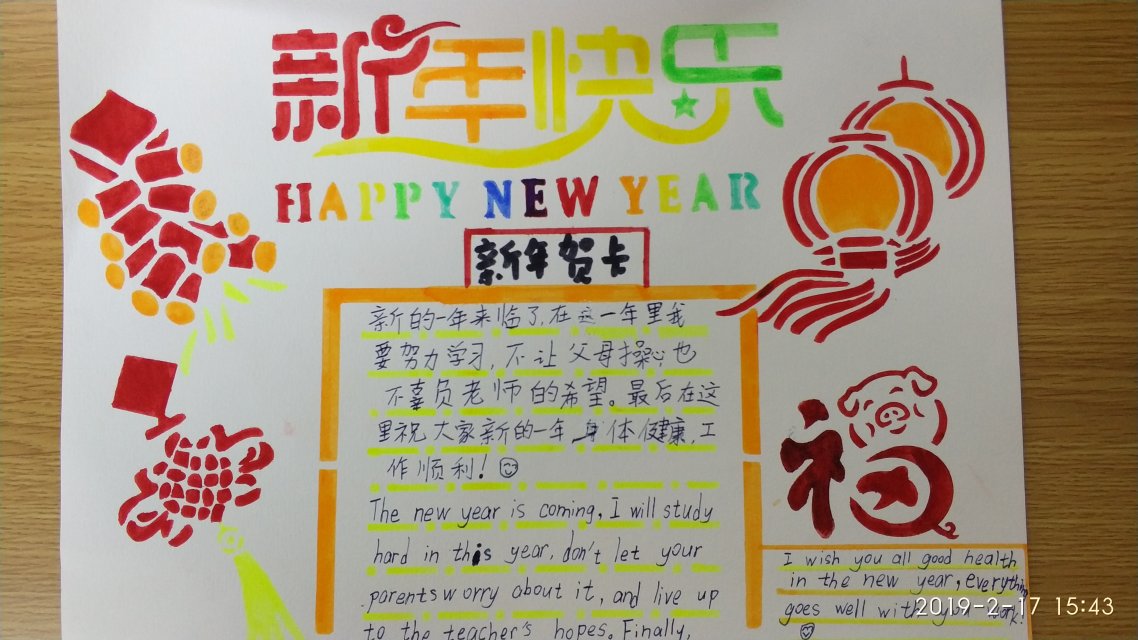 新年快乐
HAPPY NEW YEAR
新年贺卡
新的一年来临了,在这一年里我
要努力学习,不让父母操心也
不辜负老师的希望。最后在这
里祝大家新的一年,身体健康,工
作顺利!
The new year is coming, I will study
hard in this year, don't let your
parents worry about it, and live up
to the teacher's hopes. Finally,
福
I wish you all good health
in the new year, everything
goes well with you work!
2019-2-17 15:43